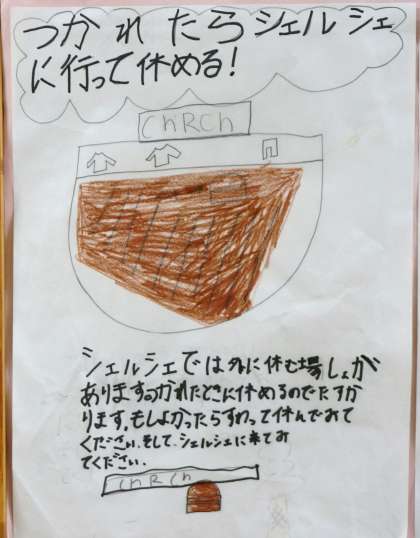 つかれたらシェルシェ
に行って休める!
ChRCh
シェルシェでは外に休む場しょが
あります。つかれたときに休めるのでたすか
ります。もしよかったらすわって休んでみて
ください。そして、シェルシェに来てみ
てください。
ChRCh